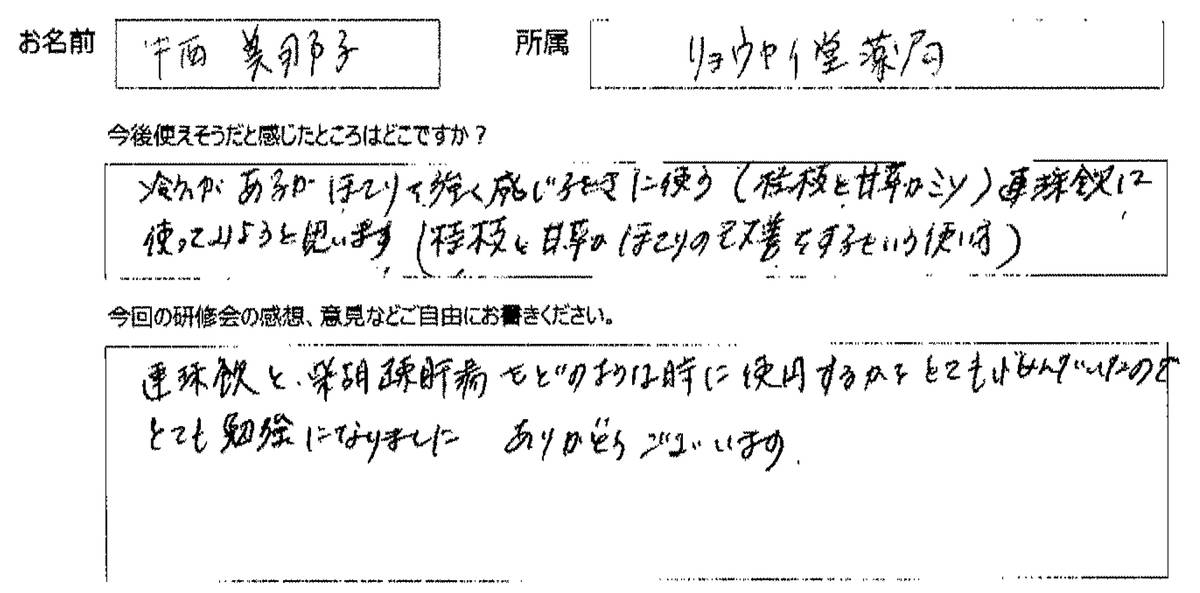 お名前 中西 美那子 所属 リョウセイ堂薬局
今後使えそうだと感じたところはどこですか？
冷えが あるが ほてりを強く感じるときに使う（桂枝と甘草がミソ）連珠飲に
使ってみようと思います（桂枝と甘草がほてりの改善をするという使い方）
今回の研修会の感想、意見などご自由にお書きください。
連珠飲と、柴胡疎肝湯をどのような時に使用するかを とても なやんでいたので
とても勉強になりました ありがとうございます.